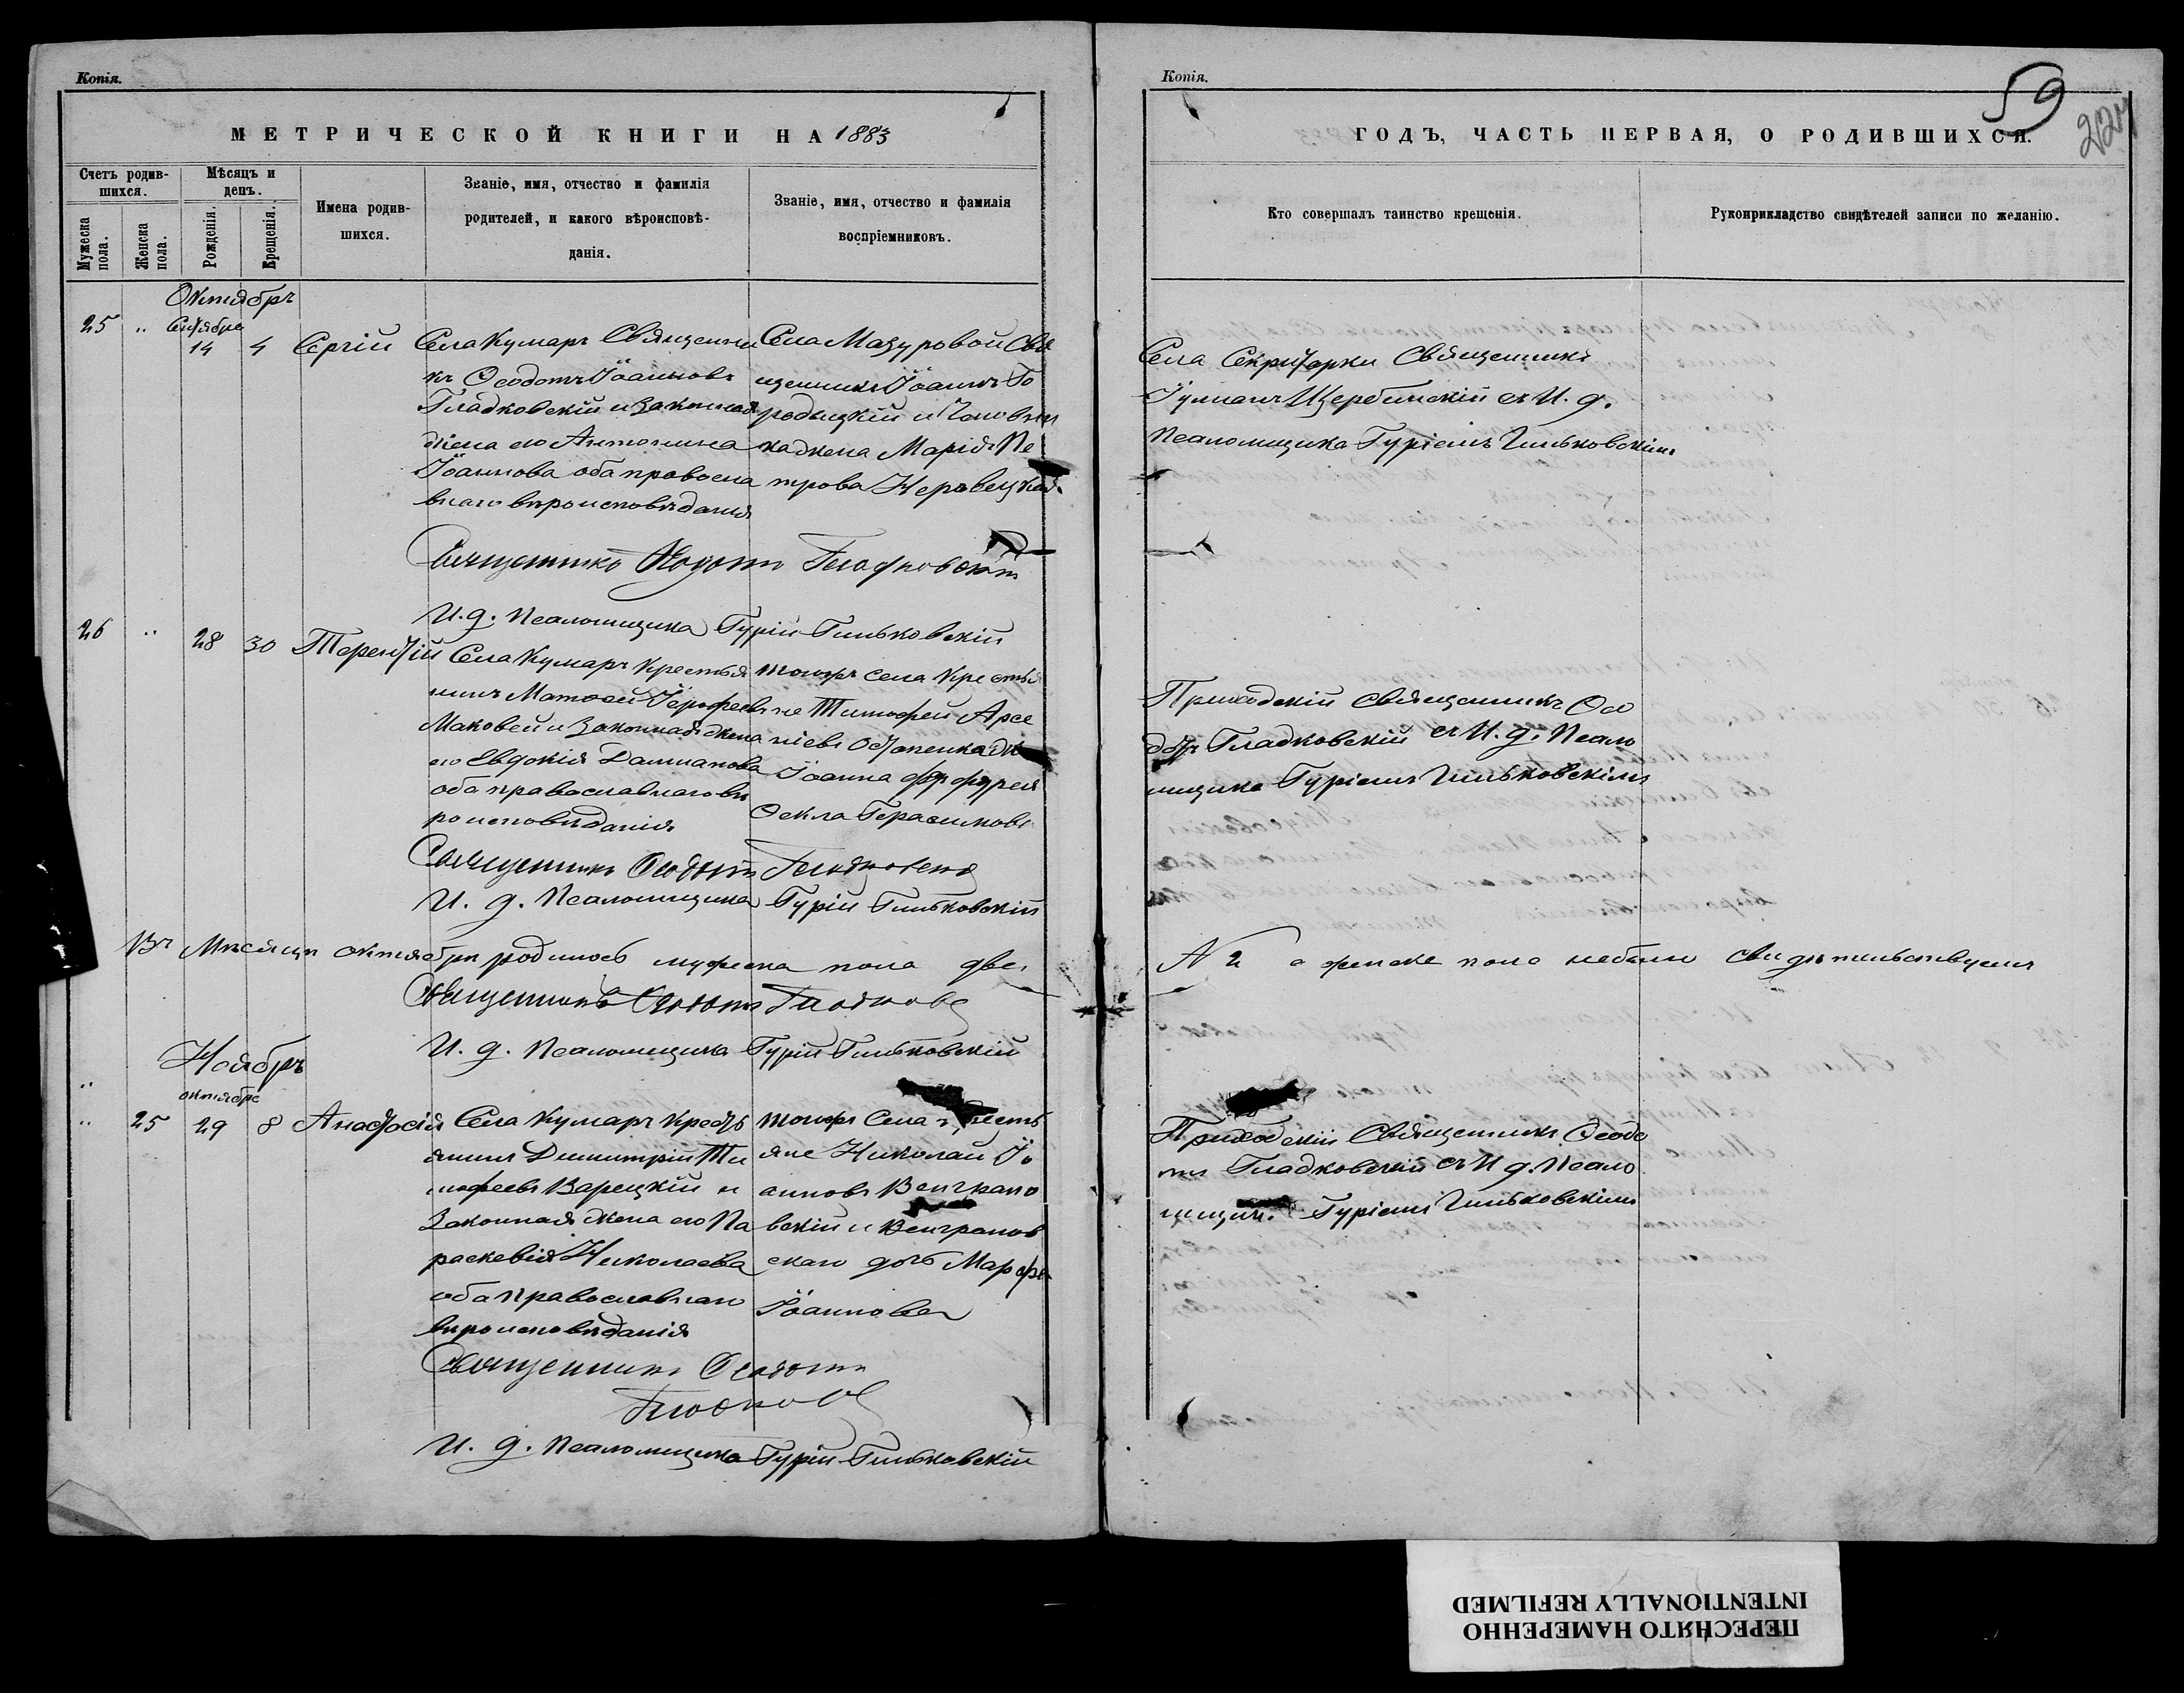 Копія.
МЕТРИЧЕСКОЙ КНИГИ НА 1883
Счетъ родив-
шихся.
Мѣсяцъ и
день.
Мужеска
пола.
Женска
пола.
Рожденія.
Крещенія.
Имена родив-
шихся.
Званіе, имя, отчество и фамилія
родителей, и какого вѣроисповѣ-
данія.
Званіе, имя, отчество и фамилія
воспріемниковъ.
Октябрь
25 " Сентября
14 4 Сергій
Села Кумаръ Священни
къ Ѳеодотъ Іоанновъ
Гладковскій и законная
жена его Антонина
Іоаннова оба правосла
внаго вѣроисповѣданія
Села Мазуровой Свя
щенникъ Іоаннъ Го
родецкій и
жена Марія Пе
трова
Священникъ Ѳеодотъ Гладковскій
И. д. Псаломщика Гурій Гиньковскій
26 " 28 30 Терентій
Села Кумаръ крестья
нинъ Матѳей Іерофеевъ
Маковей и законная жена
его Евдокія Даміанова
оба православнаго вѣ
роисповѣданія
тогожъ села крестья
не Тимофей Арсе
ніевъ
Іоанна
Ѳекла Герасимова
Священникъ Ѳеодотъ Гладковскій
И. д. Псаломщика Гурій Гиньковскій
Въ Мѣсяцѣ октябрѣ родилось мужеска пола два
Священникъ Ѳеодотъ Гладковск
И. д. Псаломщика Гурій Гиньковскій
Ноябрь
"
октября
" 25 29 8 Анастасія
Села Кумаръ крестья
янинъ Димитрій Ти
мофеевъ Варецкій и
законная жена его Па
раскевія Николаева
оба православнаго
вѣроисповѣданія
тогожъ Села кресть
яне Николай Іо
анновъ Венграно
вскій и Венгранов
скаго дочь Марфа
Іоаннова
Священникъ Ѳеодотъ
Гладковс
И. д. Псаломщика Гурій Гиньковскій
Копія.
59
224
ГОДЪ, ЧАСТЬ ПЕРВАЯ, О РОДИВШИХСЯ.
Кто совершалъ таинство крещенія.
Рукоприкладство свидѣтелей записи по желанію.
Села Секретарки Священникъ
Іуліанъ Щербинскій съ И. д.
Псаломщика Гуріемъ Гиньковскимъ
Приходскій Священникъ Ѳео
дотъ Гладковскій съ И. д. Псало
мщика Гуріемъ Гиньковскимъ
№ 2 а женска пола небыло свидѣтельствуемъ
Приходскій Священникъ Ѳеодо
тъ Гладковскій съ И. д. Псало
мщик. Гуріемъ Гиньковскимъ
ПЕРЕСНЯТО НАМЕРЕННО
INTENTIONALLY REFILMED